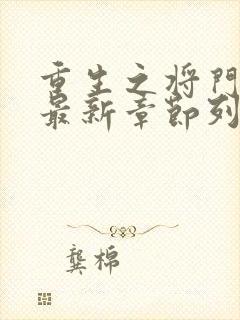 重生之将门
最新章节列
龚棉